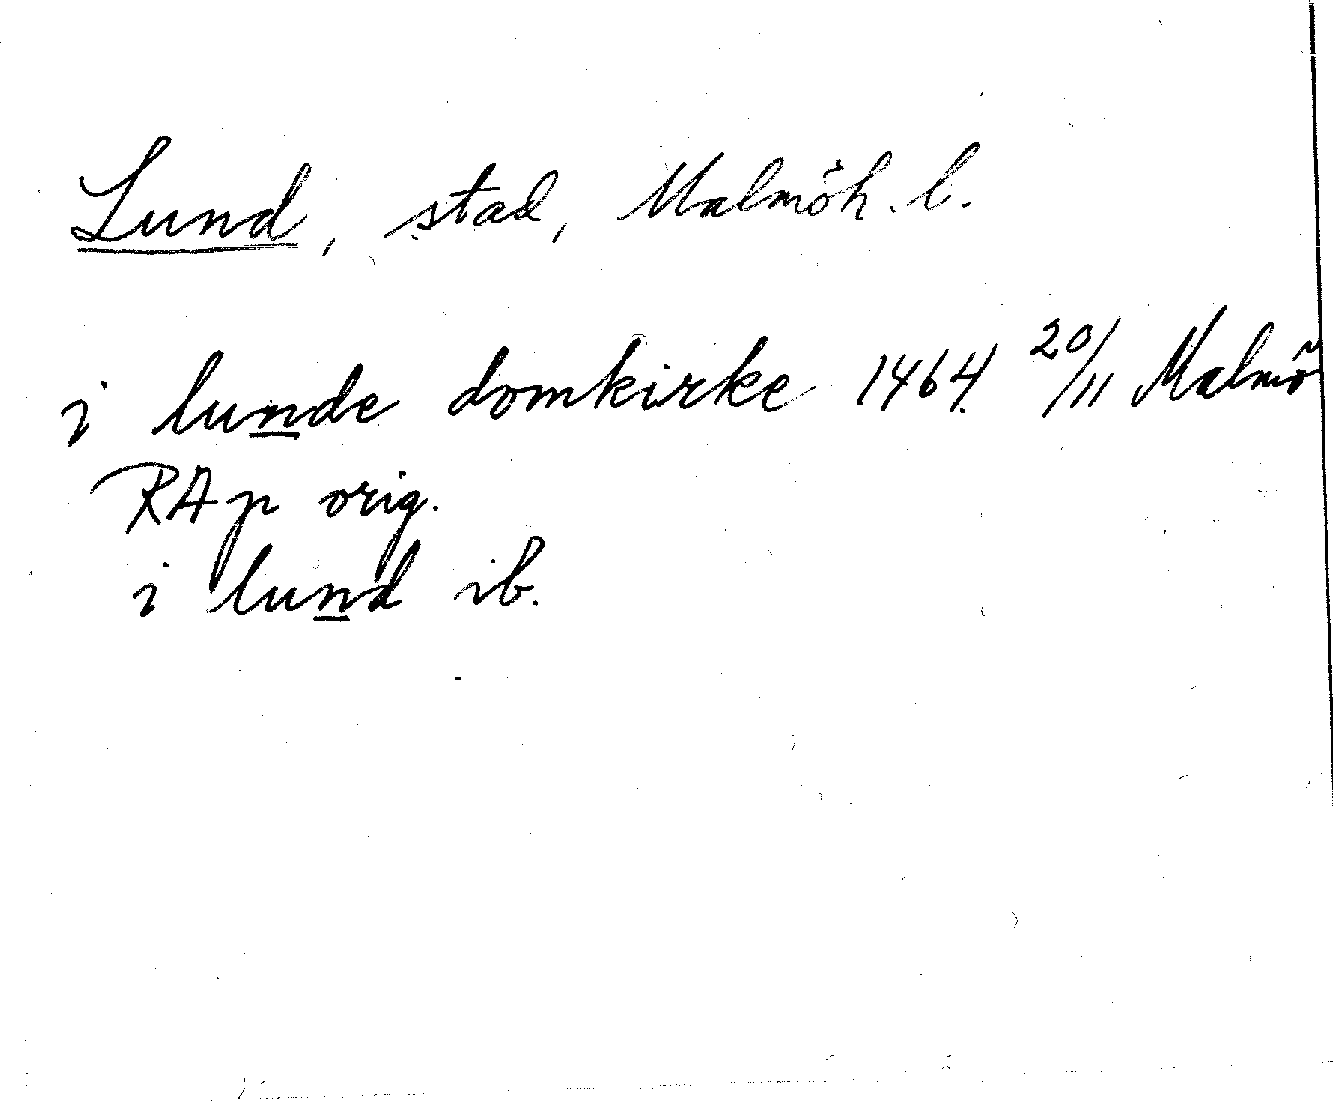 Lund, stad, Malmöh. l.
i lunde domkirke 1464 20/11 Malmö
RAp orig.
i lund ib.